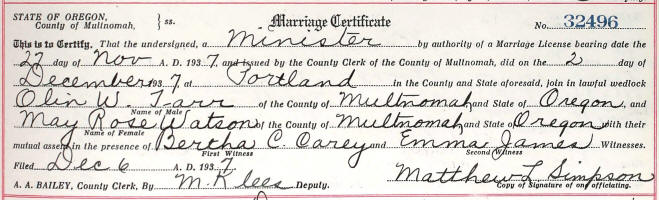 STATE OF OREGON, } ss. Marriage Certificate
County of Multnomah, No. 32496
This is to Certify, That the undersigned, a Minister by authority of a Marriage License bearing date the
27 day of Nov A. D. 193 7 and issued by the County Clerk of the County of Multnomah, did on the 2 day of
December 193 7 at Portland in the County and State aforesaid, join in lawful wedlock
Olin W. Tarr of the County of Multnomah and State of Oregon, and
Name of Male
May Rose Watson of the County of Multnomah and State of Oregon with their
Name of Female
mutual assent in the presence of Bertha C. Carey and Emma James Witnesses.
First Witness Second Witness
Filed Dec 6 A. D. 193 7 Matthew L Simpson
A. A. BAILEY, County Clerk, By M. Klees Deputy. Copy of Signature of one officiating.